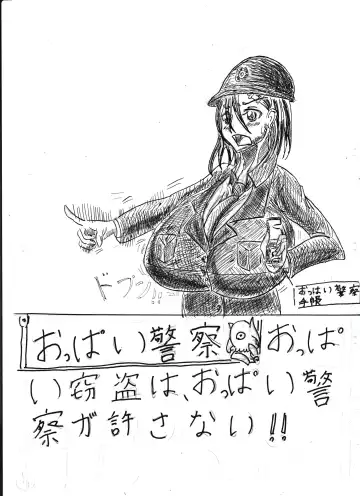 ドプン!!
おっぱい警察
手帳
おっぱい警察 おっぱ
い窃盗は、おっぱい警
察が許さない!!